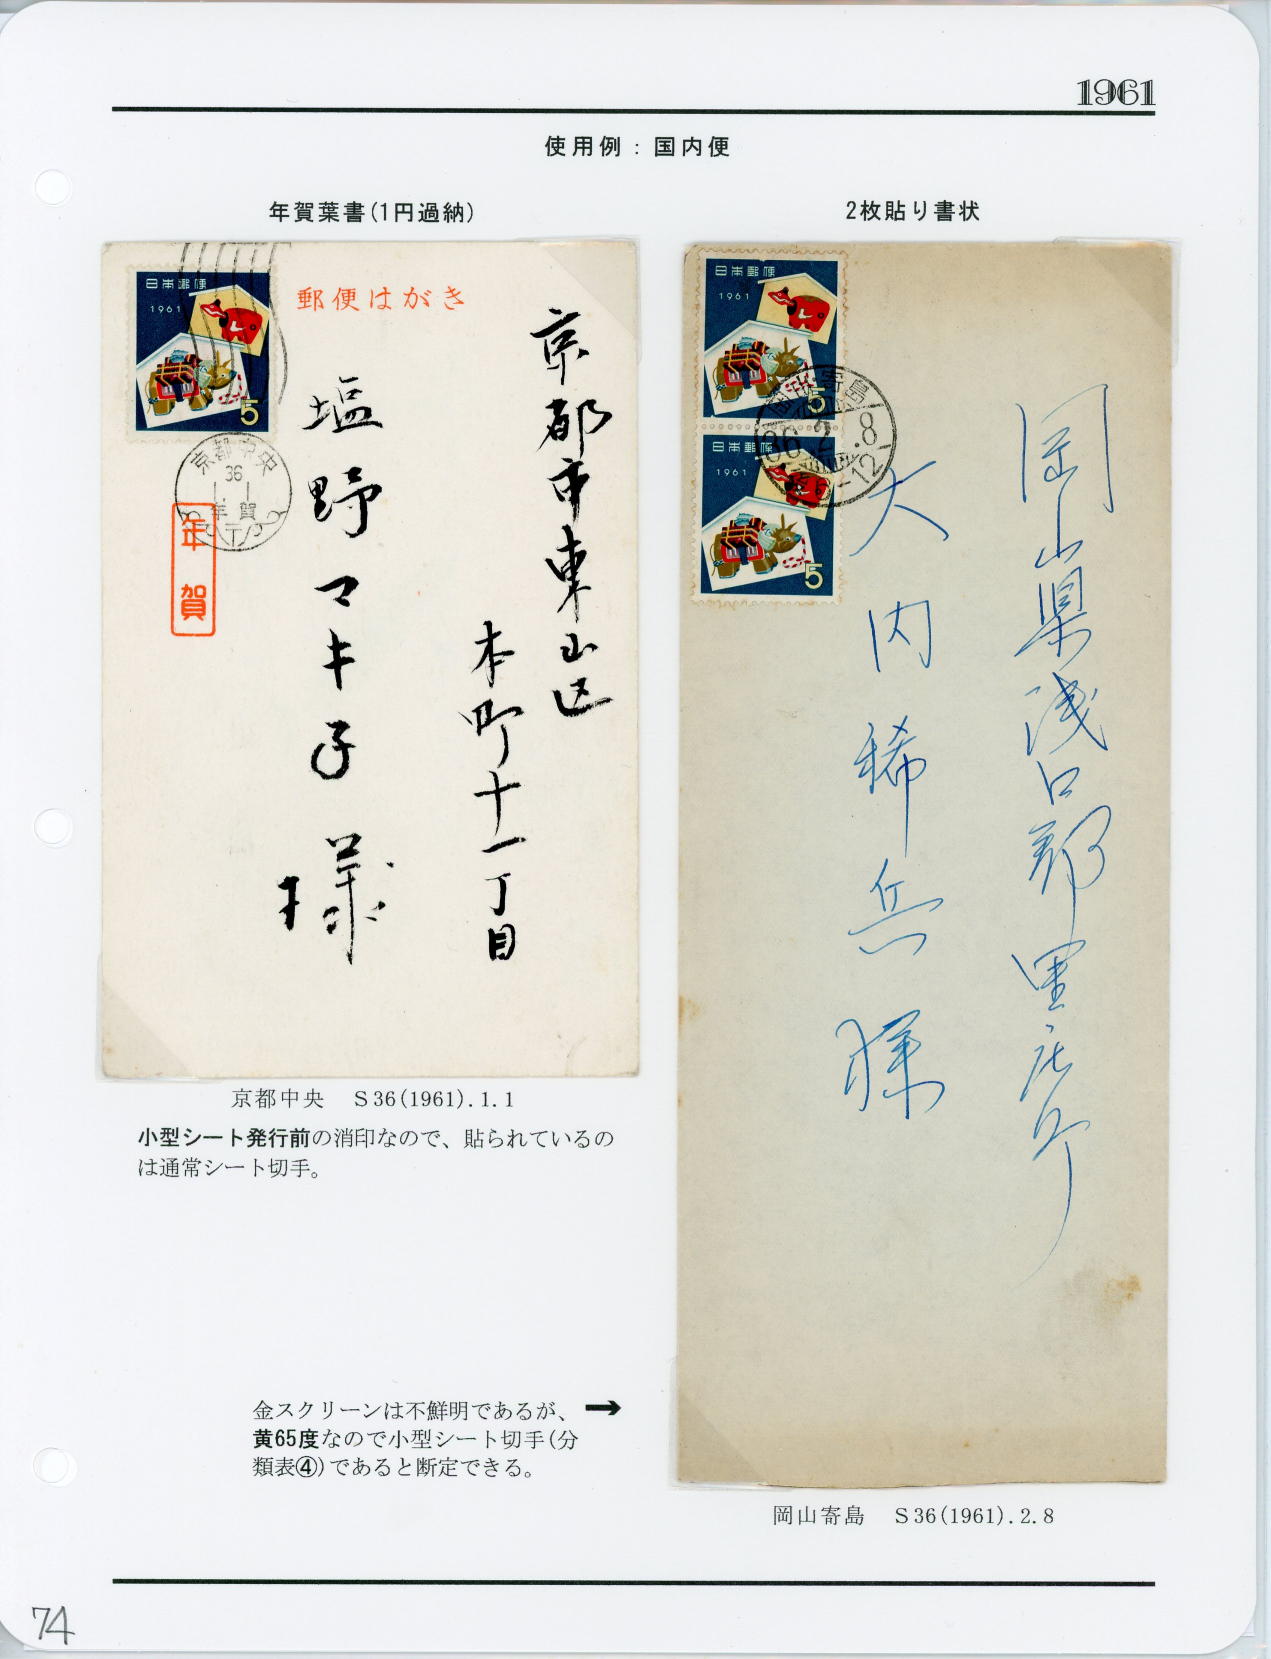 1961
使用例：国内便
年賀葉書(1円過納)
日本郵便
1961
5
郵便はがき
京都市東山区
本町十一丁目
塩野マキ子様
京都中央
36
1.1
年賀
年賀
京都中央　S36(1961).1.1
小型シート発行前の消印なので、貼られているの
は通常シート切手。
2枚貼り書状
日本郵便
1961
5
日本郵便
1961
5
36.2.8
岡山県浅口郡里庄町
大内稀兵様
金スクリーンは不鮮明であるが、➞
黄65度なので小型シート切手(分
類表④)であると断定できる。
岡山寄島　S36(1961).2.8
74